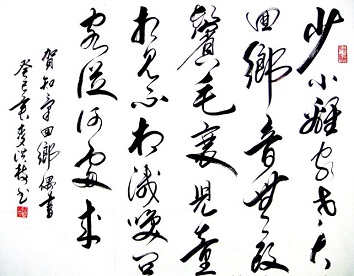 少小離家老大
回鄉音無改
鬢毛衰兒童
相見不相識笑問
客從何處來
賀知章回鄉偶書
癸巳書